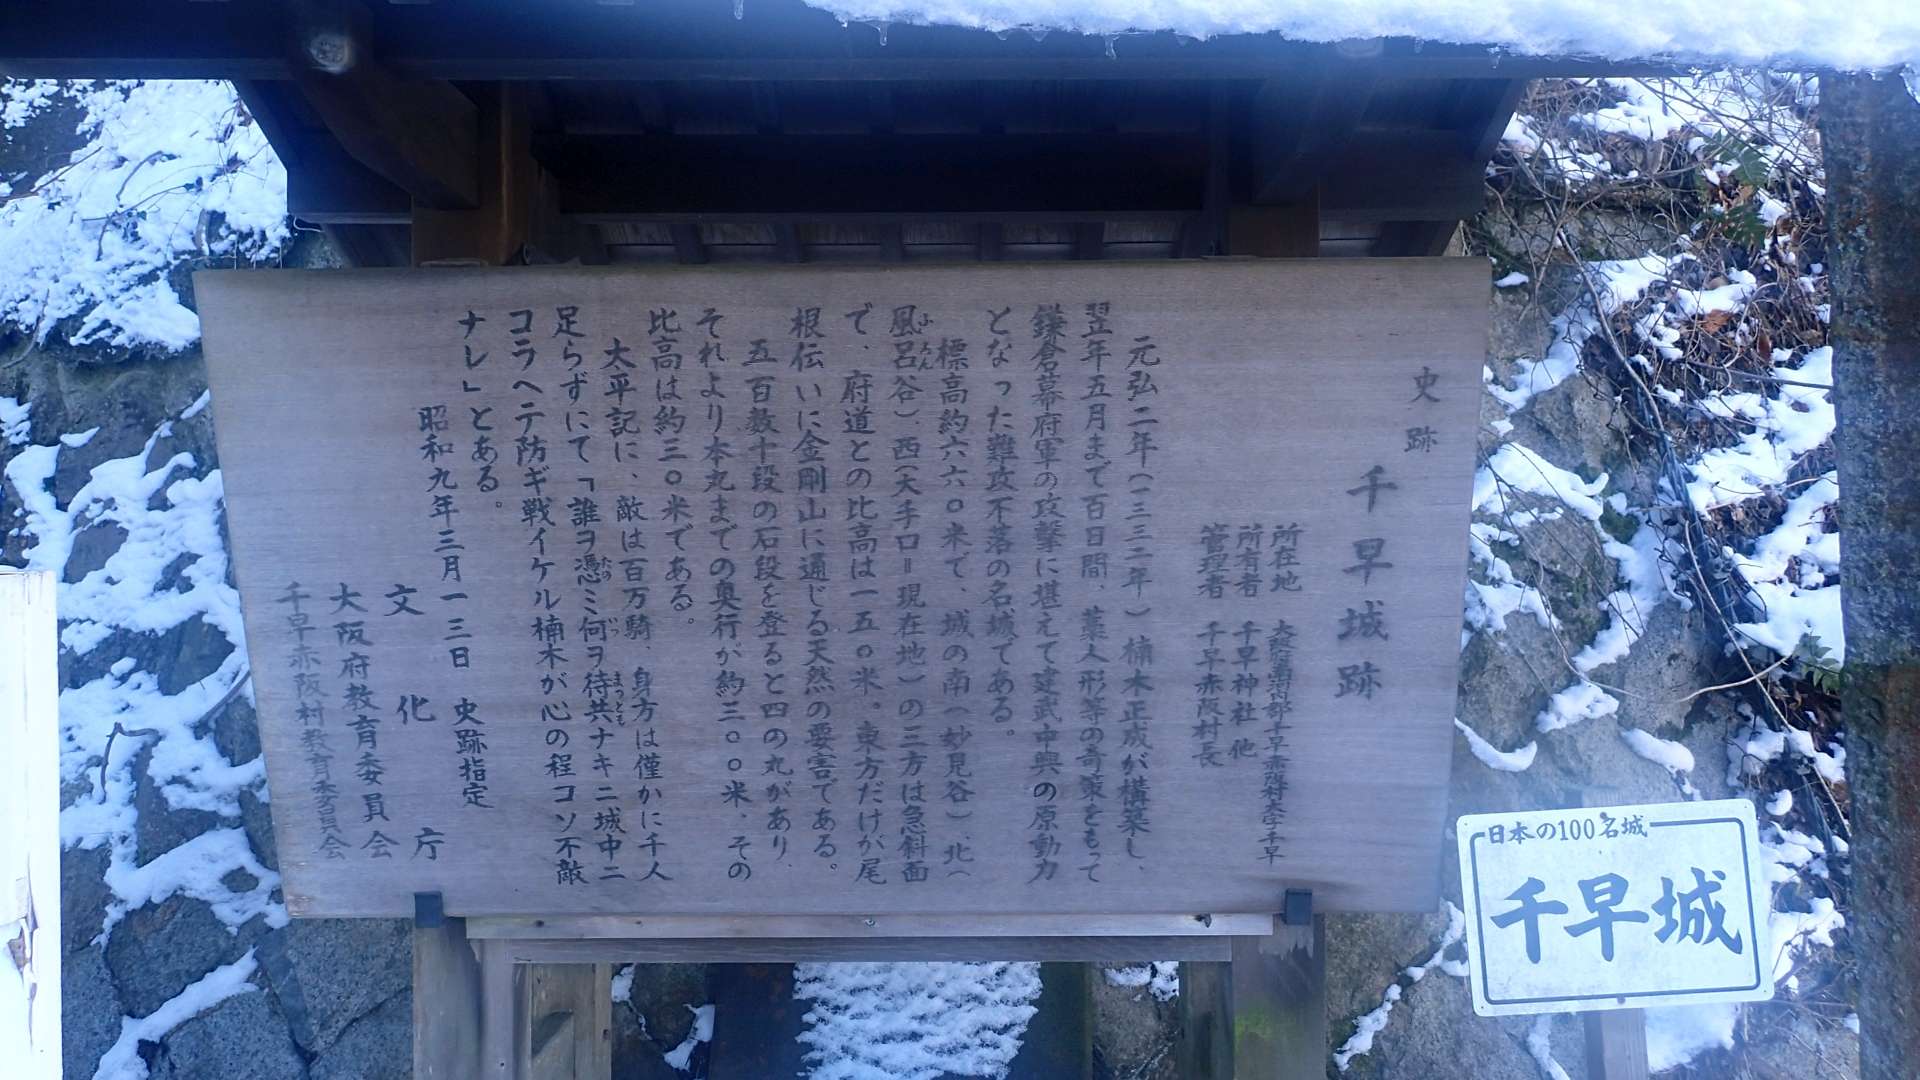 史跡 千早城跡
所在地 大阪府南河内郡千早赤阪村大字千早
所有者 千早神社 他
管理者 千早赤阪村長
元弘二年(一三三二年)楠木正成が構築し、
翌年五月まで百日間、藁人形等の奇策をもって
鎌倉幕府軍の攻撃に堪えて建武中興の原動力
となった難攻不落の名城である。
標高約六六〇米で、城の南(妙見谷)、北(
風呂谷)、西(大手口=現在地)の三方は急斜面
ふろん
で、府道との比高は一五〇米。東方だけが尾
根伝いに金剛山に通じる天然の要害である。
五百数十段の石段を登ると四の丸があり、
それより本丸までの奥行が約三〇〇米、その
比高は約三〇米である。
太平記に、敵は百万騎、身方は僅かに千人
足らずにて「誰ヲ憑ミ何ヲ待共ナキニ城中ニ
たの
いつ
まつとも
コラヘテ防ギ戦イケル楠木が心の程コソ不敵
ナレ」とある。
昭和九年三月一三日 史跡指定
文化庁
大阪府教育委員会
千早赤阪村教育委員会
日本の100名城
千早城